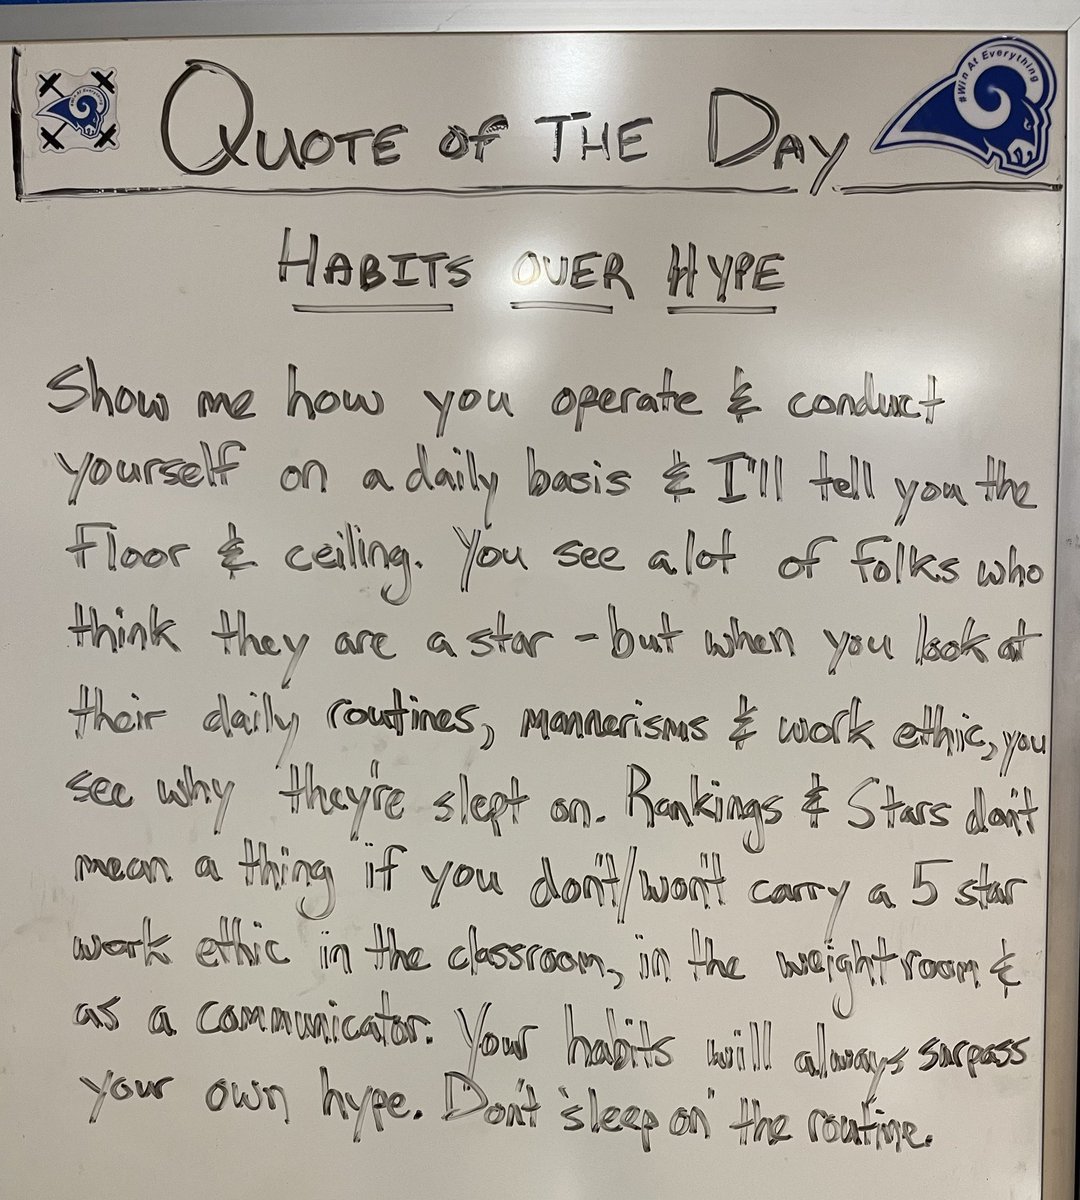 Quote of the Day
#Win At Everything
Habits over Hype
Show me how you operate & conduct
yourself on a daily basis & I'll tell you the
floor & ceiling. You see alot of folks who
think they are a star - but when you look at
their daily routines, mannerisms & work ethic, you
see why they're slept on. Rankings & Stars don't
mean a thing if you don't/won't carry a 5 star
work ethic in the classroom, in the weightroom &
as a communicator. Your habits will always surpass
your own hype. Don't 'sleep on' the routine.